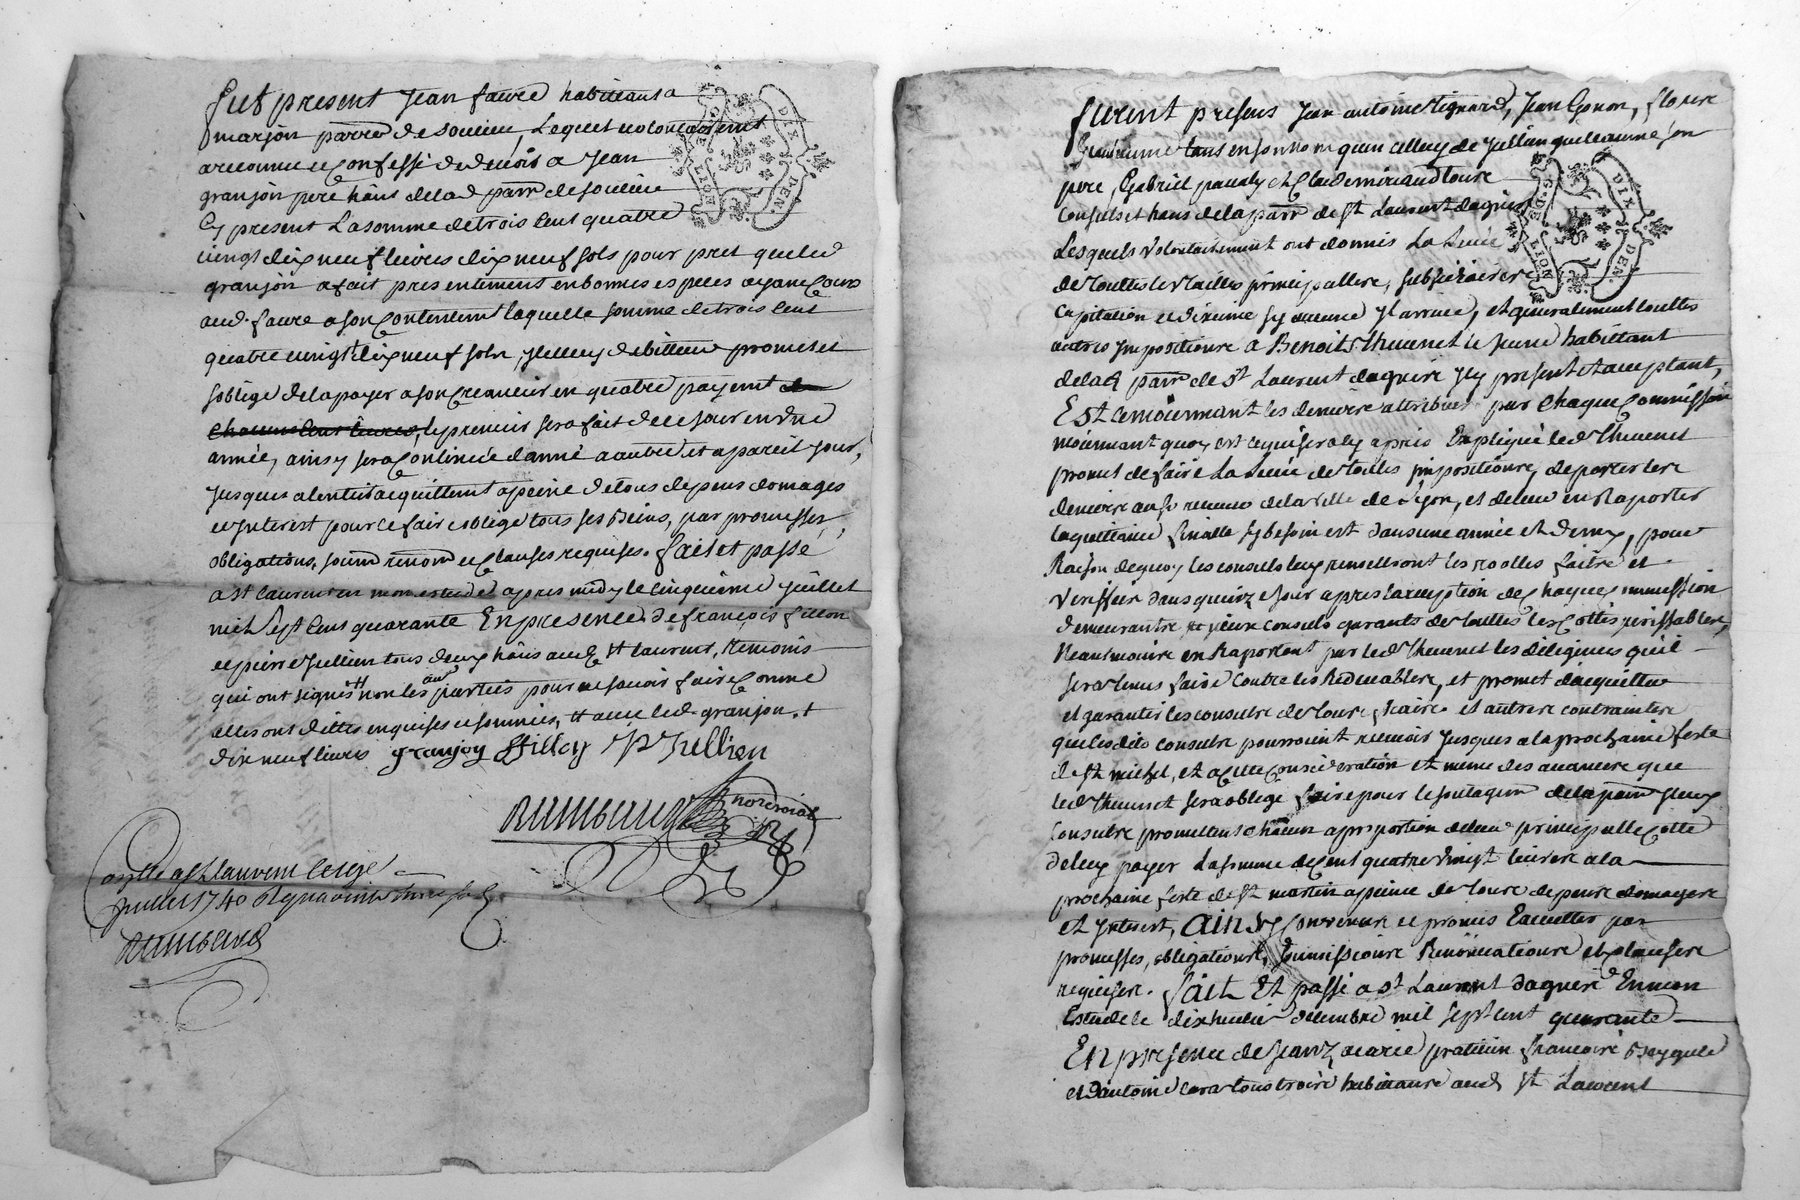 fut present Jean faure habittant a
marjon parre de soulieu, Lequel volontairement
a reconnu et Confessé de devoir a Jean
granjon pere habts de lad parr de soulieu
Cy present La somme de trois Cent quatre
vingt dix neuf livres dix neuf sols pour pret que led
granjon a fait presentement en bonnes especes ayant Cours
aud. faure a son Contentemt laquelle somme de trois Cent
quatre vingt dix neuf sols, debitteur promet et
soblige de la payer a son Creancier en quatre payemt
le premier sera fait de ce jour en une
année, ainsy sera Continué d'anné a autre et a pareil jour,
jusques a lentier acquittemt a peine de tous depens domages
et interest pour ce faire oblige tous ses biens, par promesses,
obligations, soumn renon et Clauses requises. fait et passé
a st laurent en mon estude apres midy le Cinquieme Juillet
mil sept Cent quarante En presence de françois fillon
et pierre Jullien tous deux habts aud st laurent, temoins
qui ont signés non les parties pour ne scavoir faire Comme
elles ont dittes enquises et sommées, avec led. granjon. +
dix neuf livres granjon ffilloy P Jullien
Rambaud not roial
Conlle a st laurent le six
Juillet 1740 R quarante trois s
Rambaud
furent presens Jean antoine Jean Gonon, fleurie
Guillaume tant en son nom qu'en celluy de Jullian guilleaume son
pere, Gabriel et Claude tous
Consuls et habts de la parr de St Laurent dagnies
Lesquels volontairement ont donnés La Levée
de touttes les tailles principalles, subsidiaires
Capitation et dixieme sy arrivé, et generalement touttes
autres impositions a Benoits thevenet le jeune habittant
de lad parr de St Laurent dagnies Jcy present et acceptant,
Est ce moiennant les deniers attribués par Chaque Commission
moiennant quoy est ce qui sera cy apres Expliqué led thevenet
promet de faire La Levée desdittes impositions, de porter les
deniers aux receveurs de la ville de Lyon, et de leur en Raporter
la quittance finalle sy besoin est dans une année et demy, pour
Raison de quoy les consuls luy remettront les roolles faits et
veriffiés dans quinze jours apres la reception de Chaque Commission
demeurantz yceux consuls garants de touttes les Cottes perissables,
neantmoins en Raportant par led thevenet les diligences qu'il
sera tenus faire contre les Redevables, et promet d'acquitter
et garantir les consuls de tous fraix et autres contraintes
que lesdits consuls pourroient recevoir jusques a la prochaine feste
de St michel, et a Cette Consideration et meme des avances que
led thevenet sera obligé faire pour le soulagem de la parr yceux
Consuls promettent chacun a proportion de leur principalle Cotte
de luy payer La somme de Cent quatre vingt livres a la
prochaine feste de St martin a peine de tous depens domages
et interest, ainsy Convenus et promis Executter par
promesses, obligations, Soumissions Renonciations et Clauses
requises. fait Et passé a St Laurent dagnies En mon
Estude le dix huit decembre mil sept Cent quarante
En presence de Jean Zacarie praticien françois
et d'antoine tous trois habittans aud St Laurent
G. DE LION DIX DEN.
G. DE LION DIX DEN.